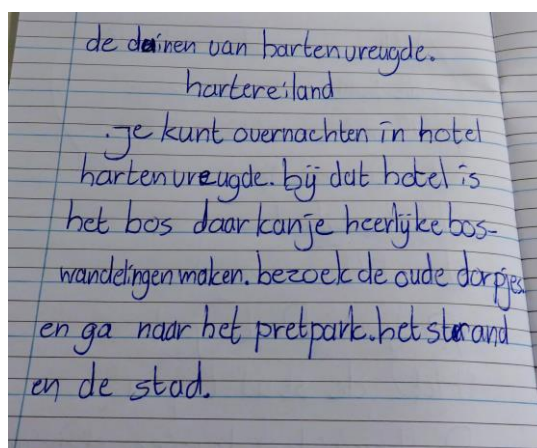 de duinen van hartenvreugde.
hartereiland
. je kunt overnachten in hotel
hartenvreugde. bij dat hotel is
het bos daar kan je heerlijke bos-
wandelingen maken. bezoek de oude dorpjes.
en ga naar het pretpark. het strand
en de stad.